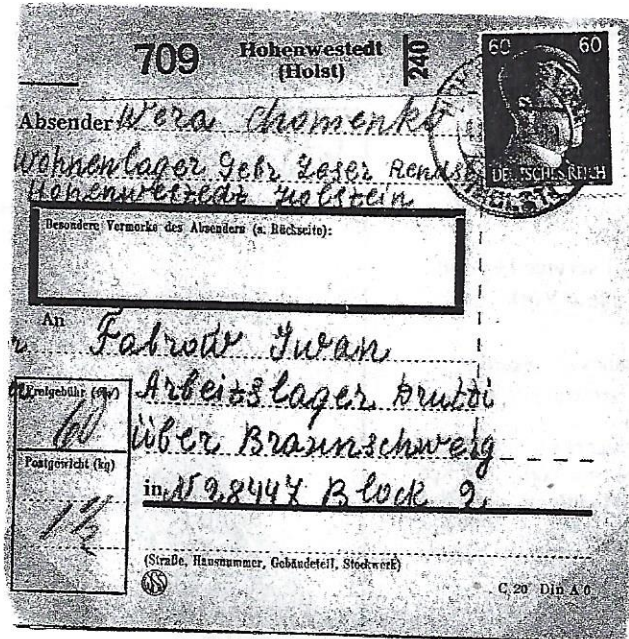 709 Hohenwestedt (Holst) 240
60 60
DEUTSCHES REICH
Absender Wera Chomenko
Wohnenlager Gebr Leser Rendsb
Hohenwestedt Holstein
Besondere Vermerke des Absenders (s. Rückseite):
An Fabrow Iwan
Arbeitslager Drutti
über Braunschweig
in N 28447 Block 2.
Freigebühr
60
Postgewicht (kg)
1½
(Straße, Hausnummer, Gebäudeteil, Stockwerk)
C 20 Din A 6